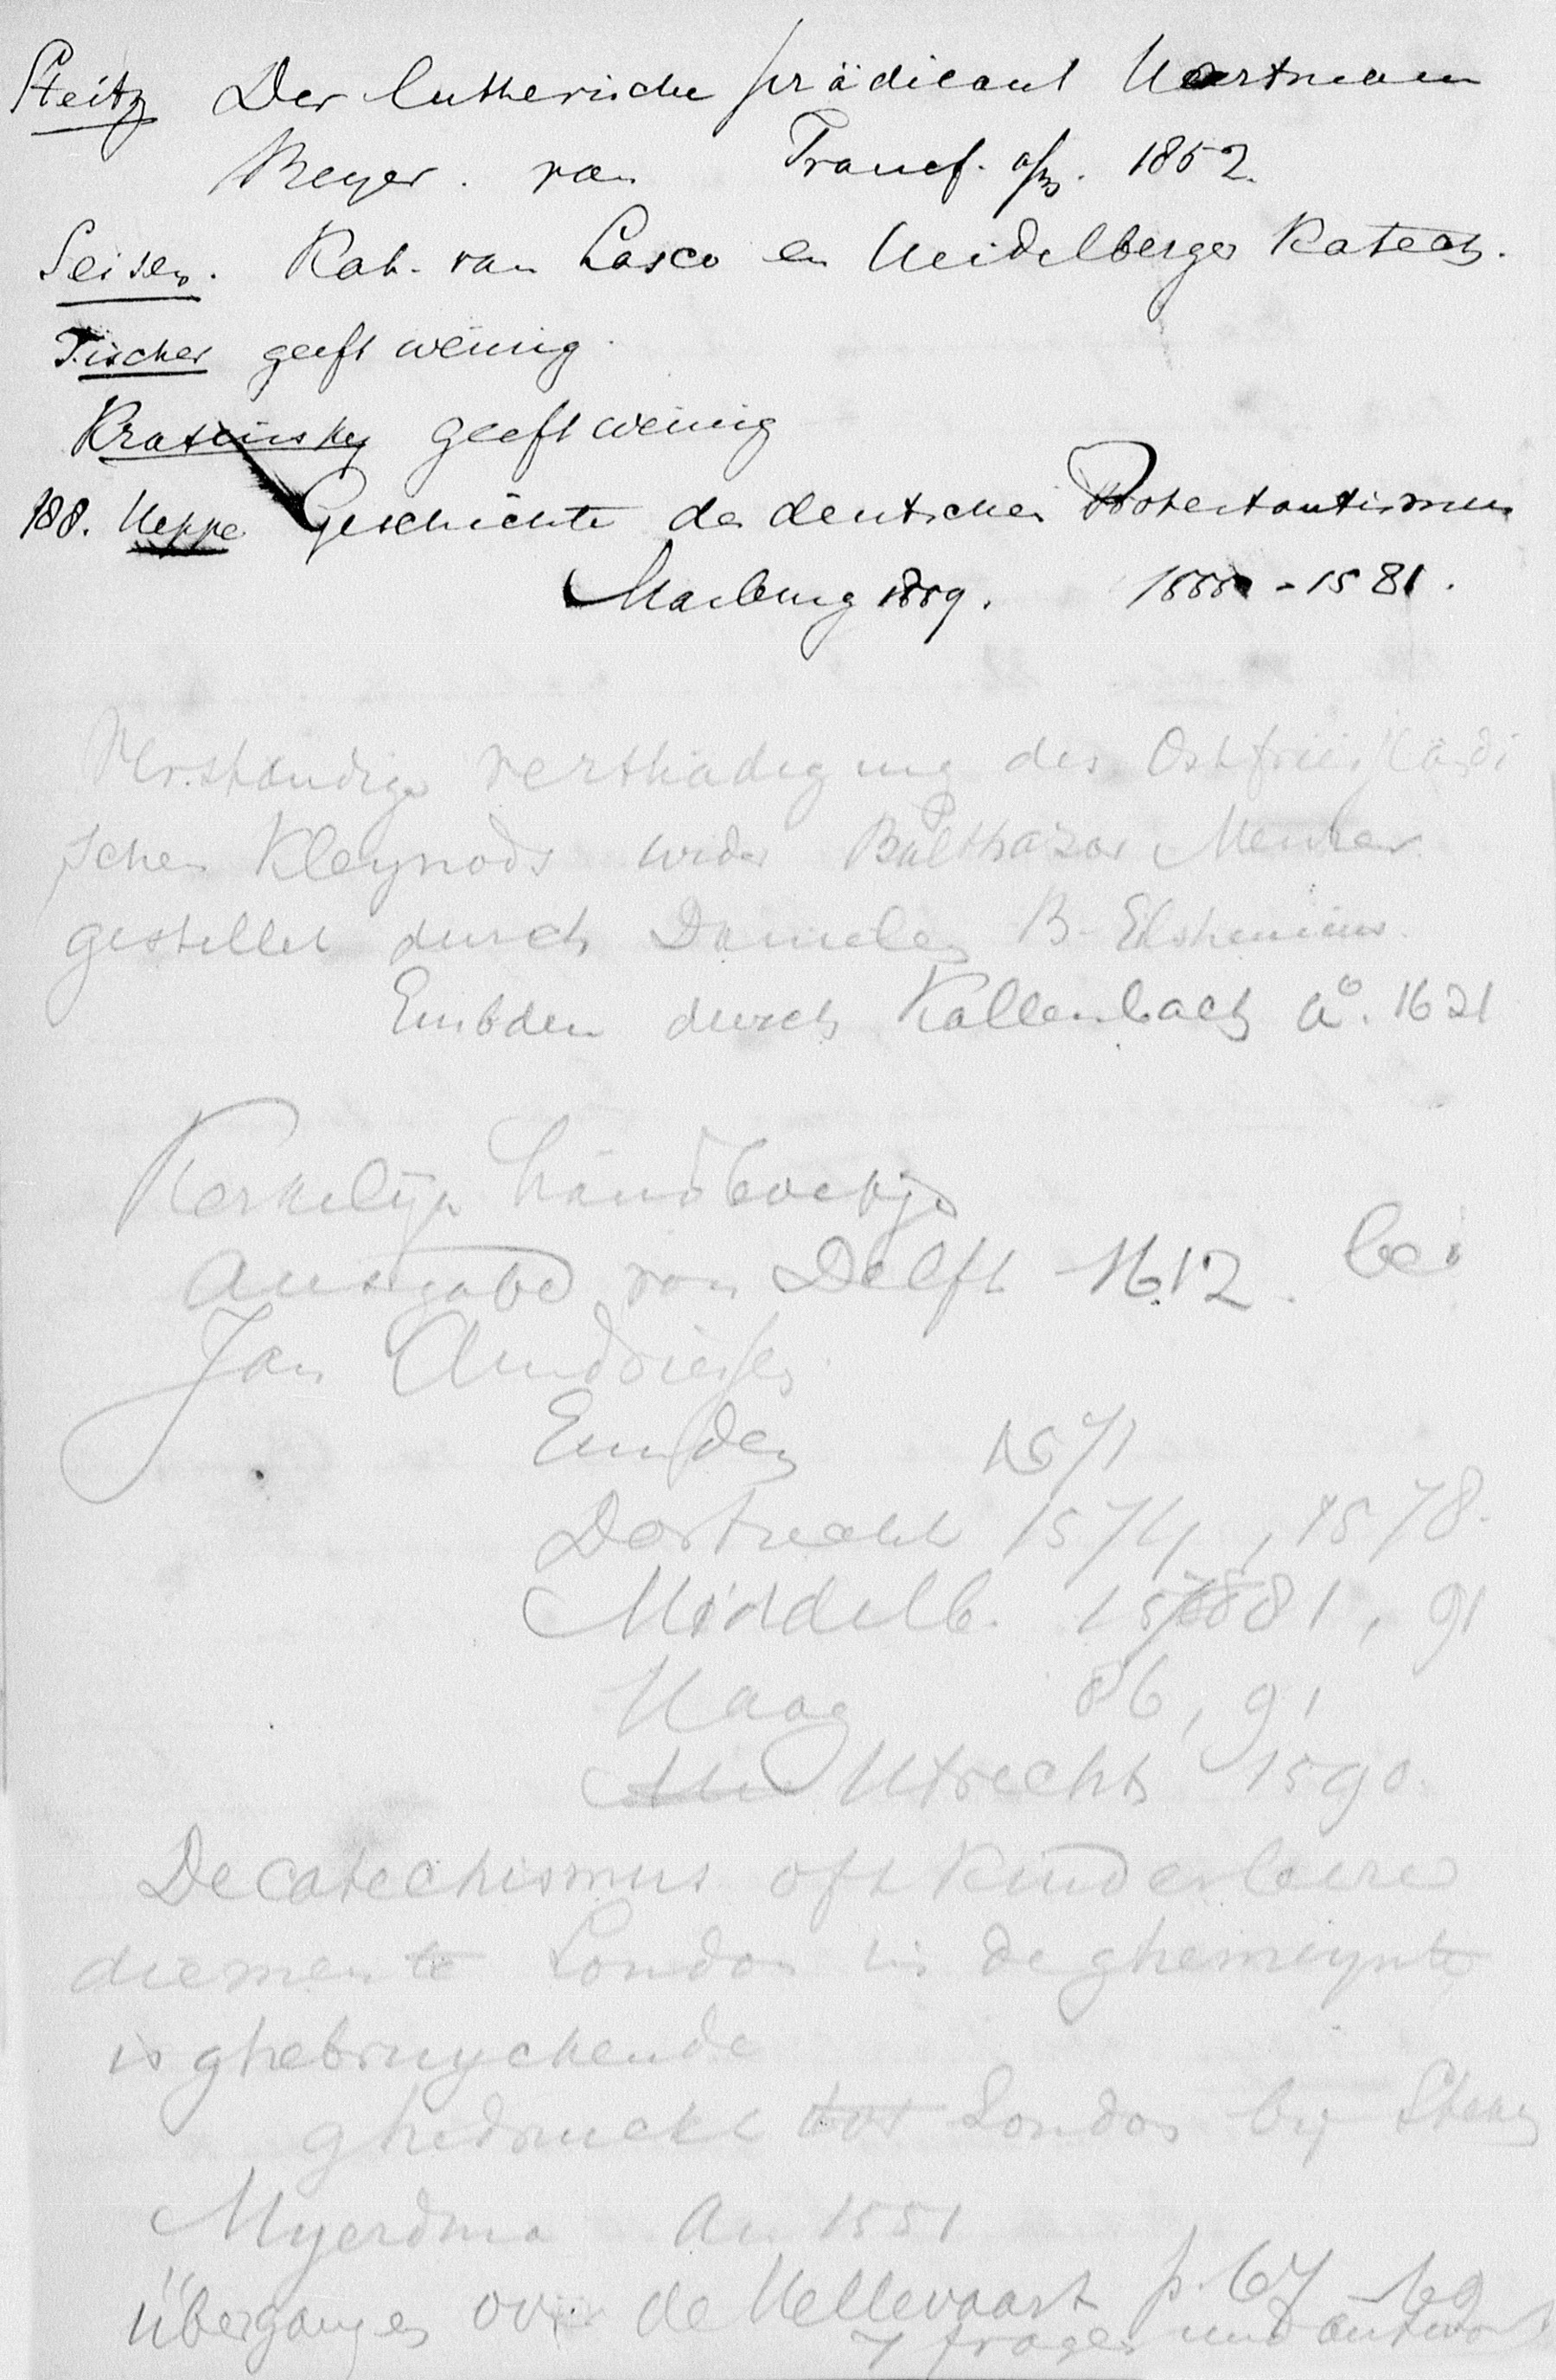 Steitz Der lutherische prädicant Hartmann
Beyer. van Francf. a/m. 1852.
Seisen. Kat. van Lasco en Heidelberger Katech.
Fischer geeft weinig
Krasinsky geeft weinig
188. Heppe Geschichte des deutschen Protestantismus
Marburg 1859. 1555 - 1581.
Verständige verthädigung des Ostfrieslandi
schen Kleynods wider Balthazar Menzer
gestellet durch Danielen B. Eilshemius.
Embden durch Kallenbach Ao. 1621
Kerkelijk handboekje
ausgabe von Delft 1612. bei
Jan Andriessen
Emden 1571
Dortrecht 1574, 1578.
Middelb. 1581, 91
Haag 86, 91
Utrecht 1590.
De catechismus oft Kinderleere
diemen te London in de ghemeynte
is ghebruyckende
ghedruckt tot London by Steven
Myerdman An 1551
Übergangen over de Hellevaart p. 67
7 fragen und antwort